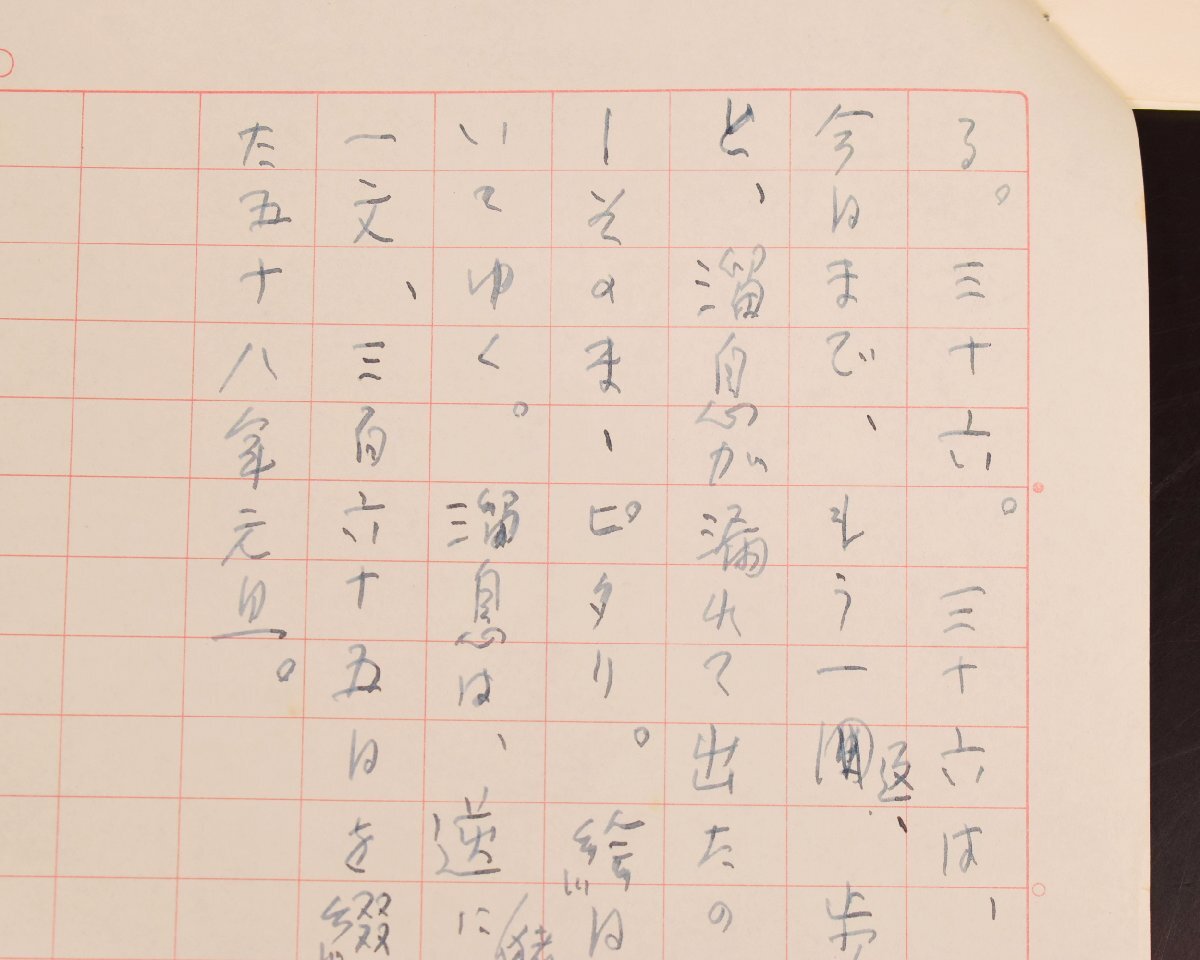 る。三十六。三十六は、
今日まで、もう一返、歩
と、溜息が漏れて出たの
ーそのまゝピタリ。絵日
いてゆく。溜息は、逆に
一文、三百六十五日を綴
た五十八年元旦。